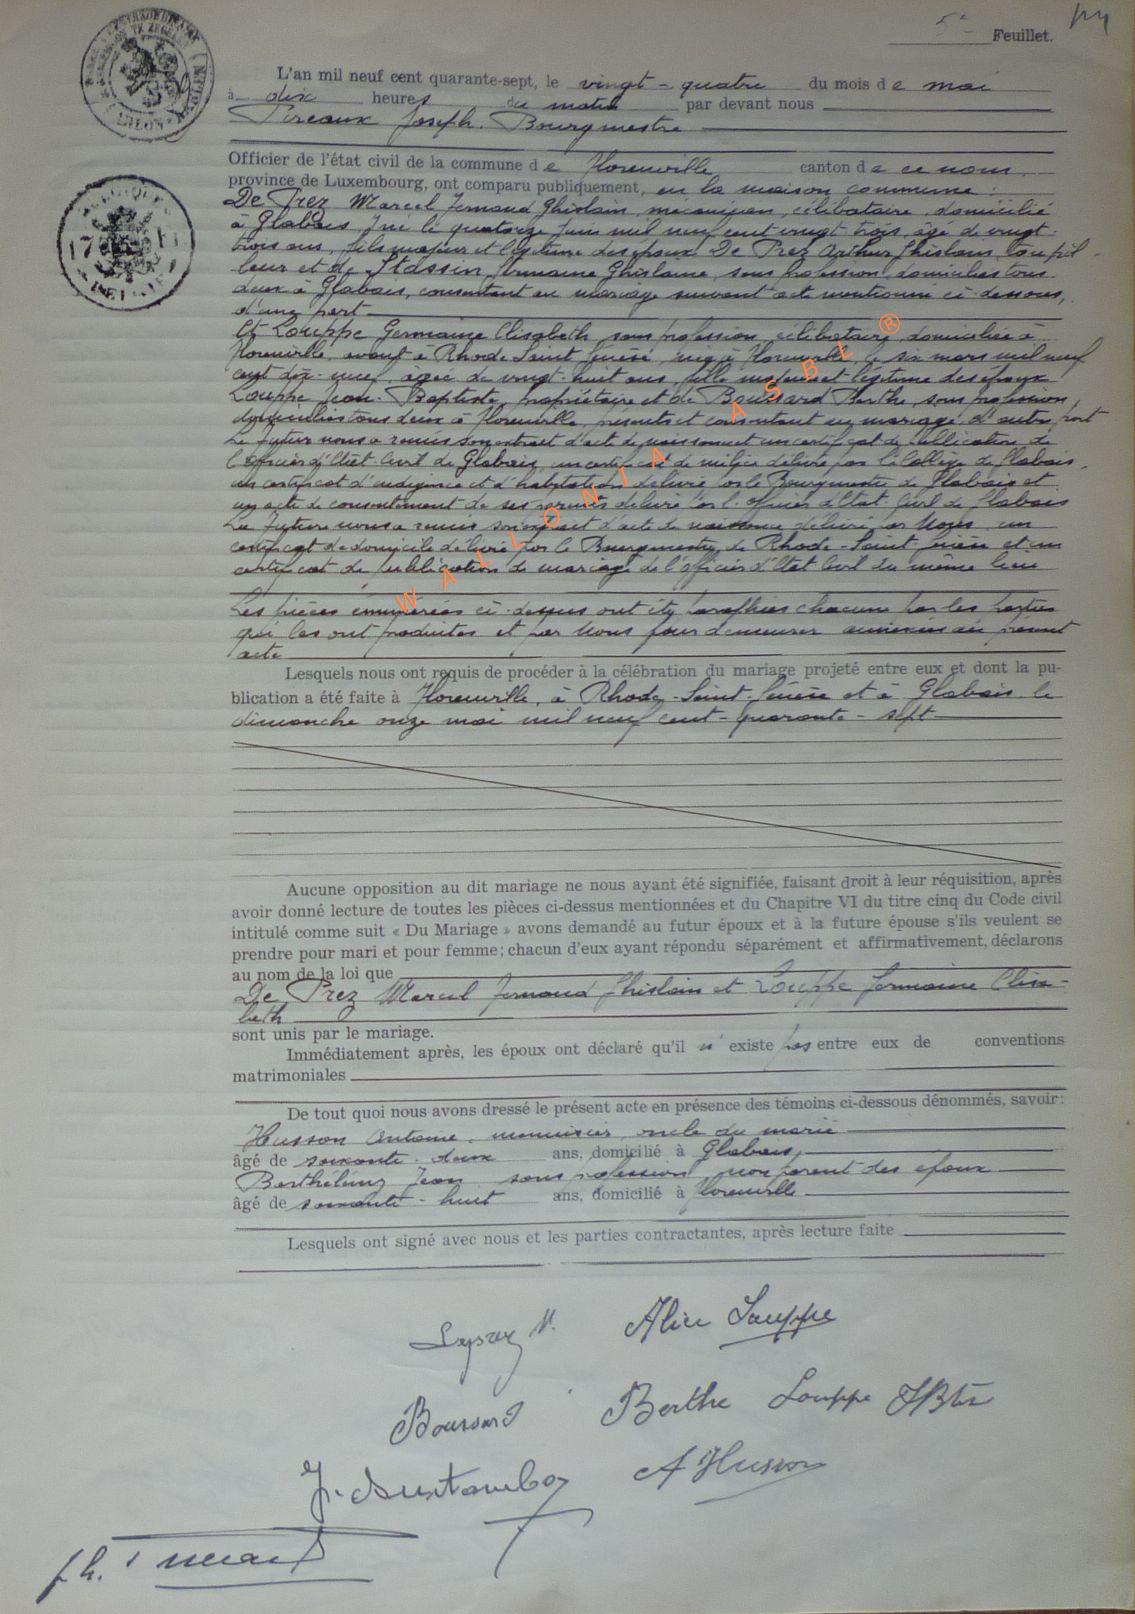 5e Feuillet.
L'an mil neuf cent quarante-sept, le vingt-quatre du mois de mai
à dix heures du matin par devant nous
Pireaux Joseph. Bourgmestre
Officier de l'état civil de la commune de Florenville canton de ce nom,
province de Luxembourg, ont comparu publiquement, en la maison commune :
De Prez Marcel Fernand Ghislain, mécanicien, célibataire, domicilié
à Glabais, y né le quatorze juin mil neuf cent vingt-trois, âgé de vingt-
trois ans, fils majeur et légitime des époux De Prez Arthur Ghislain,
et de Stassin, Germaine Ghislaine, sans profession, domiciliés tous
deux à Glabais, consentant au mariage suivant acte mentionné ci-dessous,
d'une part
Et Louppe Germaine Elisabeth, sans profession, célibataire, domiciliée à
Florenville, avant à Rhode-Saint-Genèse, née à Florenville, le six mars mil neuf
cent dix-neuf, âgée de vingt-huit ans, fille majeure et légitime des époux
Louppe Jean-Baptiste, propriétaire et de Boussard Berthe, sans profession,
domiciliés tous deux à Florenville, présents et consentant au mariage, d'autre part
Le futur nous a remis son extrait d'acte de naissance et un certificat de publication de
l'Officier d'Etat-Civil de Glabais, un certificat de milice délivré par le Collège de Glabais,
un certificat d'indigence et d'habitation délivré par le Bourgmestre de Glabais et
un acte de consentement de ses parents délivré par l'officier d'Etat-Civil de Glabais
La future nous a remis son extrait d'acte de naissance délivré par Nous, un
certificat de domicile délivré par le Bourgmestre de Rhode-Saint-Genèse et un
certificat de publication de mariage de l'officier d'Etat Civil du même lieu
Les pièces énumérées ci-dessus ont été paraphées chacune par les parties
qui les ont produites et par Nous pour demeurer annexées au présent
acte
Lesquels nous ont requis de procéder à la célébration du mariage projeté entre eux et dont la pu-
blication a été faite à Florenville, à Rhode-Saint-Genèse et à Glabais le
dimanche onze mai mil neuf cent-quarante-sept
Aucune opposition au dit mariage ne nous ayant été signifiée, faisant droit à leur réquisition, après
avoir donné lecture de toutes les pièces ci-dessus mentionnées et du Chapitre VI du titre cinq du Code civil
intitulé comme suit « Du Mariage » avons demandé au futur époux et à la future épouse s'ils veulent se
prendre pour mari et pour femme; chacun d'eux ayant répondu séparément et affirmativement, déclarons
au nom de la loi que
De Prez Marcel Fernand Ghislain et Louppe Germaine Elisa-
beth
sont unis par le mariage.
Immédiatement après, les époux ont déclaré qu'il n'existe pas entre eux de conventions
matrimoniales
De tout quoi nous avons dressé le présent acte en présence des témoins ci-dessous dénommés, savoir:
Husson Antoine, menuisier, oncle du marié
âgé de soixante-deux ans, domicilié à Glabais,
Barthélemy Jean, sans profession, non parent des époux
âgé de soixante-huit ans, domicilié à Florenville
Lesquels ont signé avec nous et les parties contractantes, après lecture faite
Alice Louppe
Boussard Berthe Louppe JBte
A Husson
WALLONIA ASBL ®